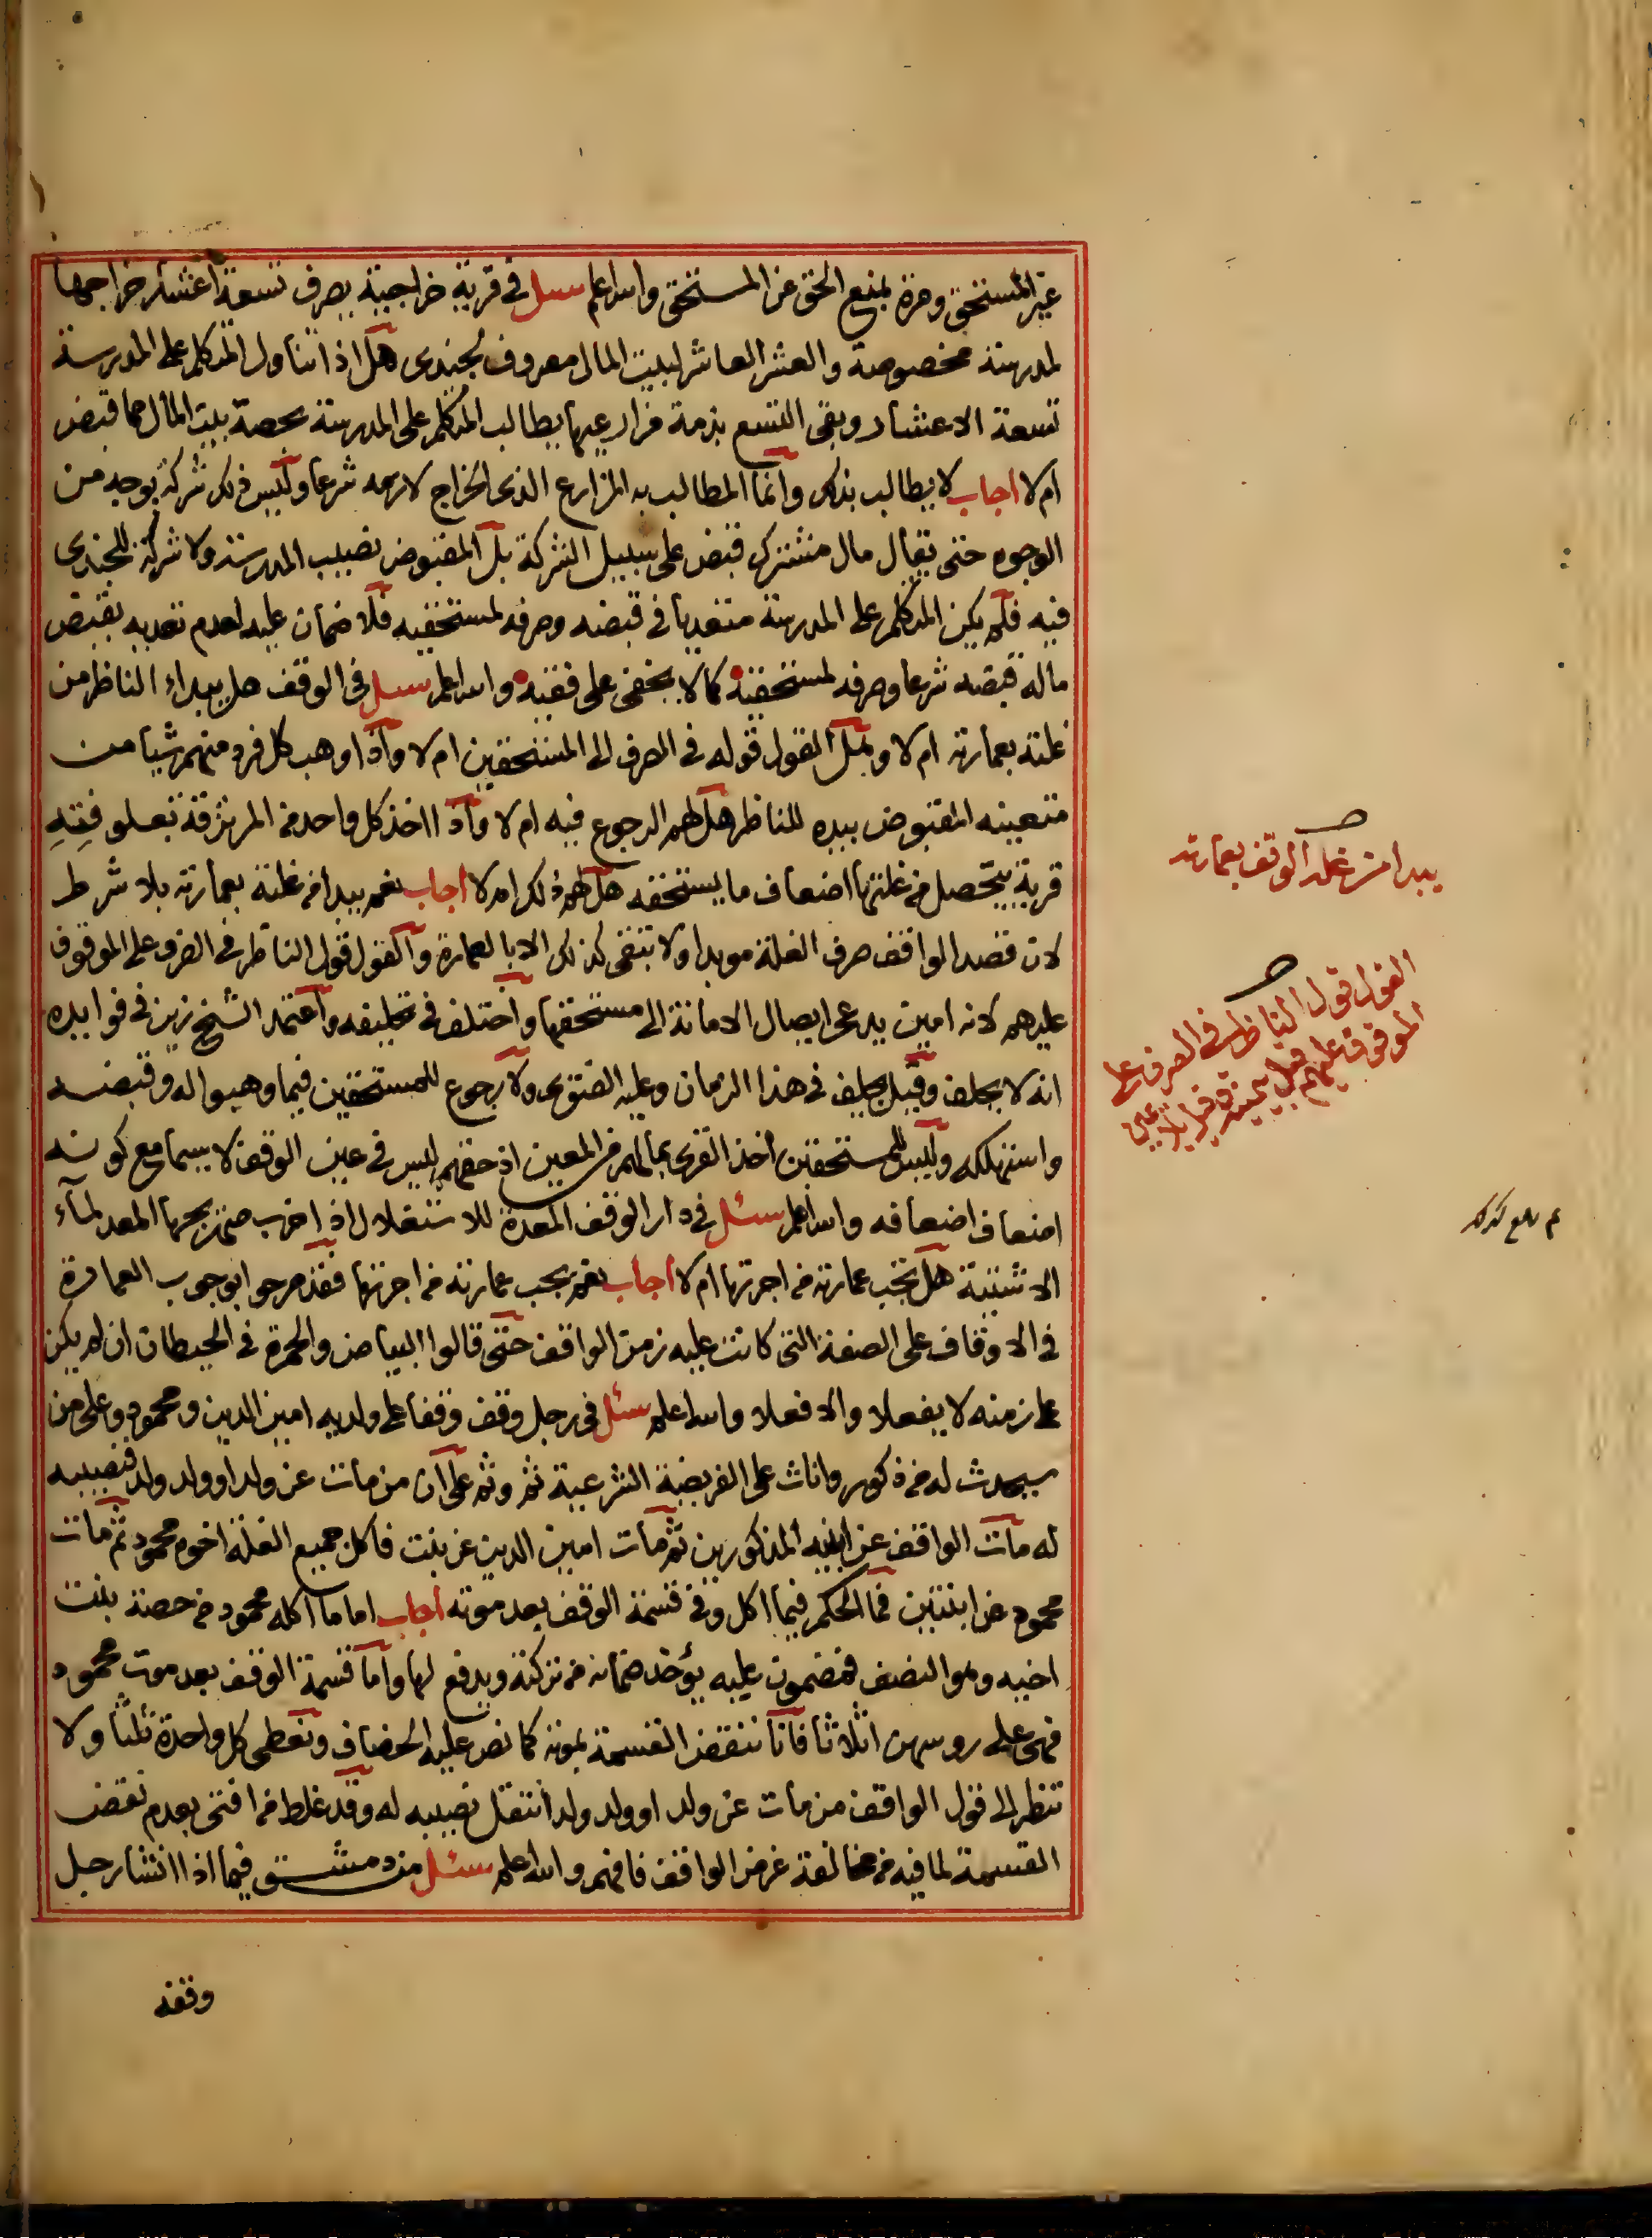 غير المستحق ومرة بمنع الحق عن المستحق والله اعلم سئل في قرية خراجية يصرف تسعة اعشار خراجها
لمدرسة مخصوصة والعشر العاشر لبيت المال معروف بجندى هل اذا تناول المتكلم على المدرسة
تسعة الاعشار وبقى التسع بذمة مزارعيها يطالب المتكلم على المدرسة بحصة بيت المال مما قبض
ام لا اجاب لا يطالب بذلك وانما المطالب به المزارع الذى الخراج لازمه شرعا وليس ذلك شركة بوجه من
الوجوه حتى يقال مال مشترك قبض على سبيل الشركة بل المقبوض نصيب المدرسة ولا شركة للجندى
فيه فلم يكن المتكلم على المدرسة متعديا في قبضه وصرفه لمستحقيه فلا ضمان عليه لعدم تعديه بقبض
ماله قبضه شرعا وصرفه لمستحقيه كما لا يخفى على فقيه والله اعلم سئل في الوقف هل يبداء الناظر من
غلته بعمارته ام لا وهل القول قوله في الصرف الى المستحقين ام لا واذا وهب كل فرد منهم شيا من
متعينه المقبوض بيده للناظر هل لهم الرجوع فيه ام لا واذا اخذ كل واحد من المرتزقة بمعلومه
قرية يتحصل من غلتها اضعاف ما يستحقه هل لهم ذلك ام لا اجاب نعم يبدا من غلته بعمارته بلا شرط
لان قصد الواقف صرف الغلة موبدا ولا تبقى كذلك الا بالعمارة والقول قول الناظر في الصرف على الموقوف
عليهم لانه امين يدعى ايصال الامانة الى مستحقها واختلف في تحليفه واعتمد الشيخ زين في فوايده
انه لا يحلف وقيل يحلف في هذا الزمان وعليه الفتوى ولا رجوع للمستحقين فيما وهبوا له وقبضه
واستهلكه وليس للمستحقين اخذ القرى بمالهم من المعين اذ حقهم ليس في عين الوقف لا سيما مع كونه
اضعاف اضعافه والله اعلم سئل في دار الوقف المعدة للاستغلال اذا خرب صهريجها المعد لماء
الاشتية هل تجب عمارته من اجرتها ام لا اجاب نعم يجب عمارته من اجرتها فقد صرحوا بوجوب العمارة
في الاوقاف على الصفة التى كانت عليه زمن الواقف حتى قالوا البياض والحمرة في الحيطان ان لم يكن
على زمنه لا يفعلا والا فعلا والله اعلم سئل في رجل وقف وقفا على ولديه امين الدين ومحمود وعلى من
سيحدث له من ذكور واناث على الفريضة الشرعية ثم وثم على ان من مات عن ولد او ولد ولد فنصيبه
له مات الواقف عن ابنيه المذكورين ثم مات امين الدين عن بنت فاكل جميع الغلة اخوه محمود ثم مات
محمود عن ابنتين فما الحكم فيما اكل وفي قسمة الوقف بعد موته اجاب اما ما اكله محمود من حصة بنت
اخيه وهو النصف فمضمون عليه يؤخذ ضمانه من تركته ويدفع لها واما قسمة الوقف بعد موت محمود
فهى على روسهن اثلاثا فانا ننقض القسمة بموته كما نص عليه الخصاف ونعطى كل واحدة ثلثا ولا
ننظر الى قول الواقف من مات عن ولد او ولد ولد انتقل نصيبه له وقد غلط من افتى بعدم نقض
القسمة لما فيه من مخالفة غرض الواقف فافهم والله اعلم سئل من دمشق فيما اذا انشا رجل
وقفه
يبدا من غلة الوقف بعمارته
القول قول الناظر في الصرف على
الموقوف عليهم